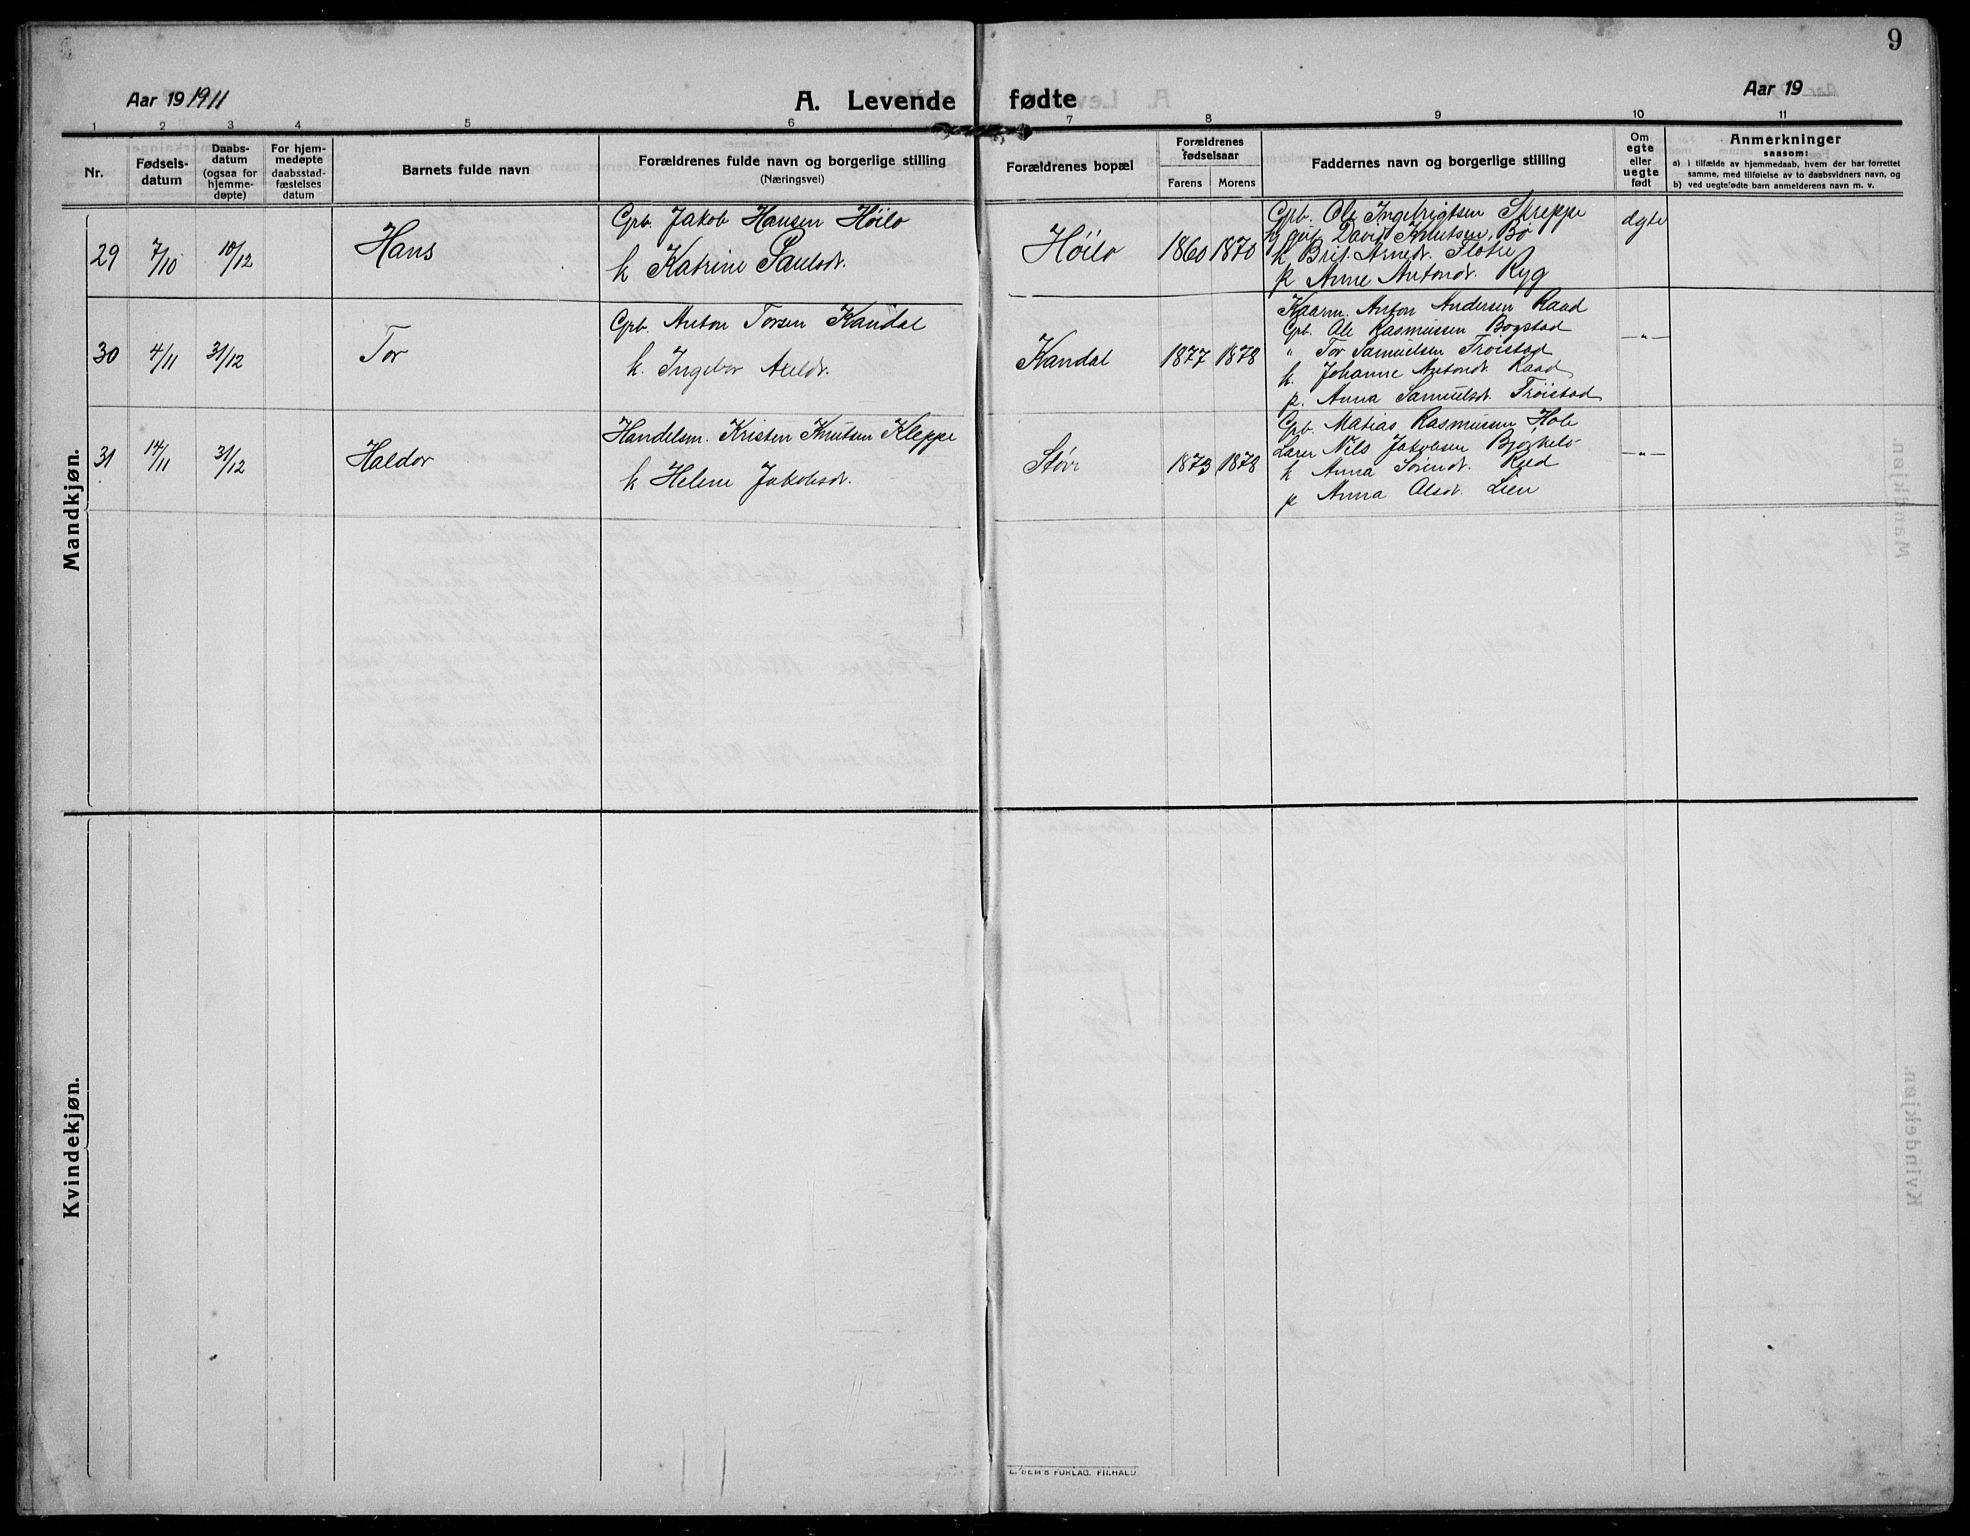 9
Aar 19 1911
A. Levende fødte
Aar 19
1 2 3 4 5 6 7 8 9 10 11
Nr.
Fødsels-
datum
Daabs-
datum
(ogsaa for
hjemme-
døpte)
For hjem-
medøpte
daabsstad-
fæstelses
datum
Barnets fulde navn
Forældrenes fulde navn og borgerlige stilling
(Næringsvei)
Forældrenes bopæl
Forældrenes
fødselsaar
Farens Morens
Faddernes navn og borgerlige stilling
Om
egte
eller
uegte
født
Anmerkninger
saasom:
a) i tilfælde av hjemmedaab, hvem der har forrettet
samme, med tilføielse av to daabsvidners navn, og
b) ved uegtefødte barn anmelderens navn m. v.
Mandkjøn.
29 7/10 10/12 Hans
Grb. Jakob Hansen Höilo
k Katrine Paulsdt.
Höilo 1860 1870
Grb. Ole Ingebrigtsen Skreppe
David Knutsen Bø
k Brit Arnedt. Flotre
p Anne Antondt. Ryg
ægte
30 4/11 31/12 Tor
Grb. Anton Torsen Kandal
k. Ingebor Axeldt.
Kandal 1877 1878
Kaarm. Anton Andersen Raad
Grb. Ole Rasmussen Bogstad
" Tor Samuelsen Tröistad
k. Johanne Antondt Raad
p. Anna Samuelsdt. Tröistad
—"—
31 14/11 31/12 Haldor
Handelsm. Kristen Knutsen Kleppe
k Helene Jakobsdt.
Störe 1873 1878
Grb. Matias Rasmussen Hole
Lærer Nils Jakobsen Bjørkelo
k Anna Sörendt. Reed
p Anna Olsdt. Lien
—"—
Kvindekjøn.
E. SEM'S FORLAG, FR.HALD